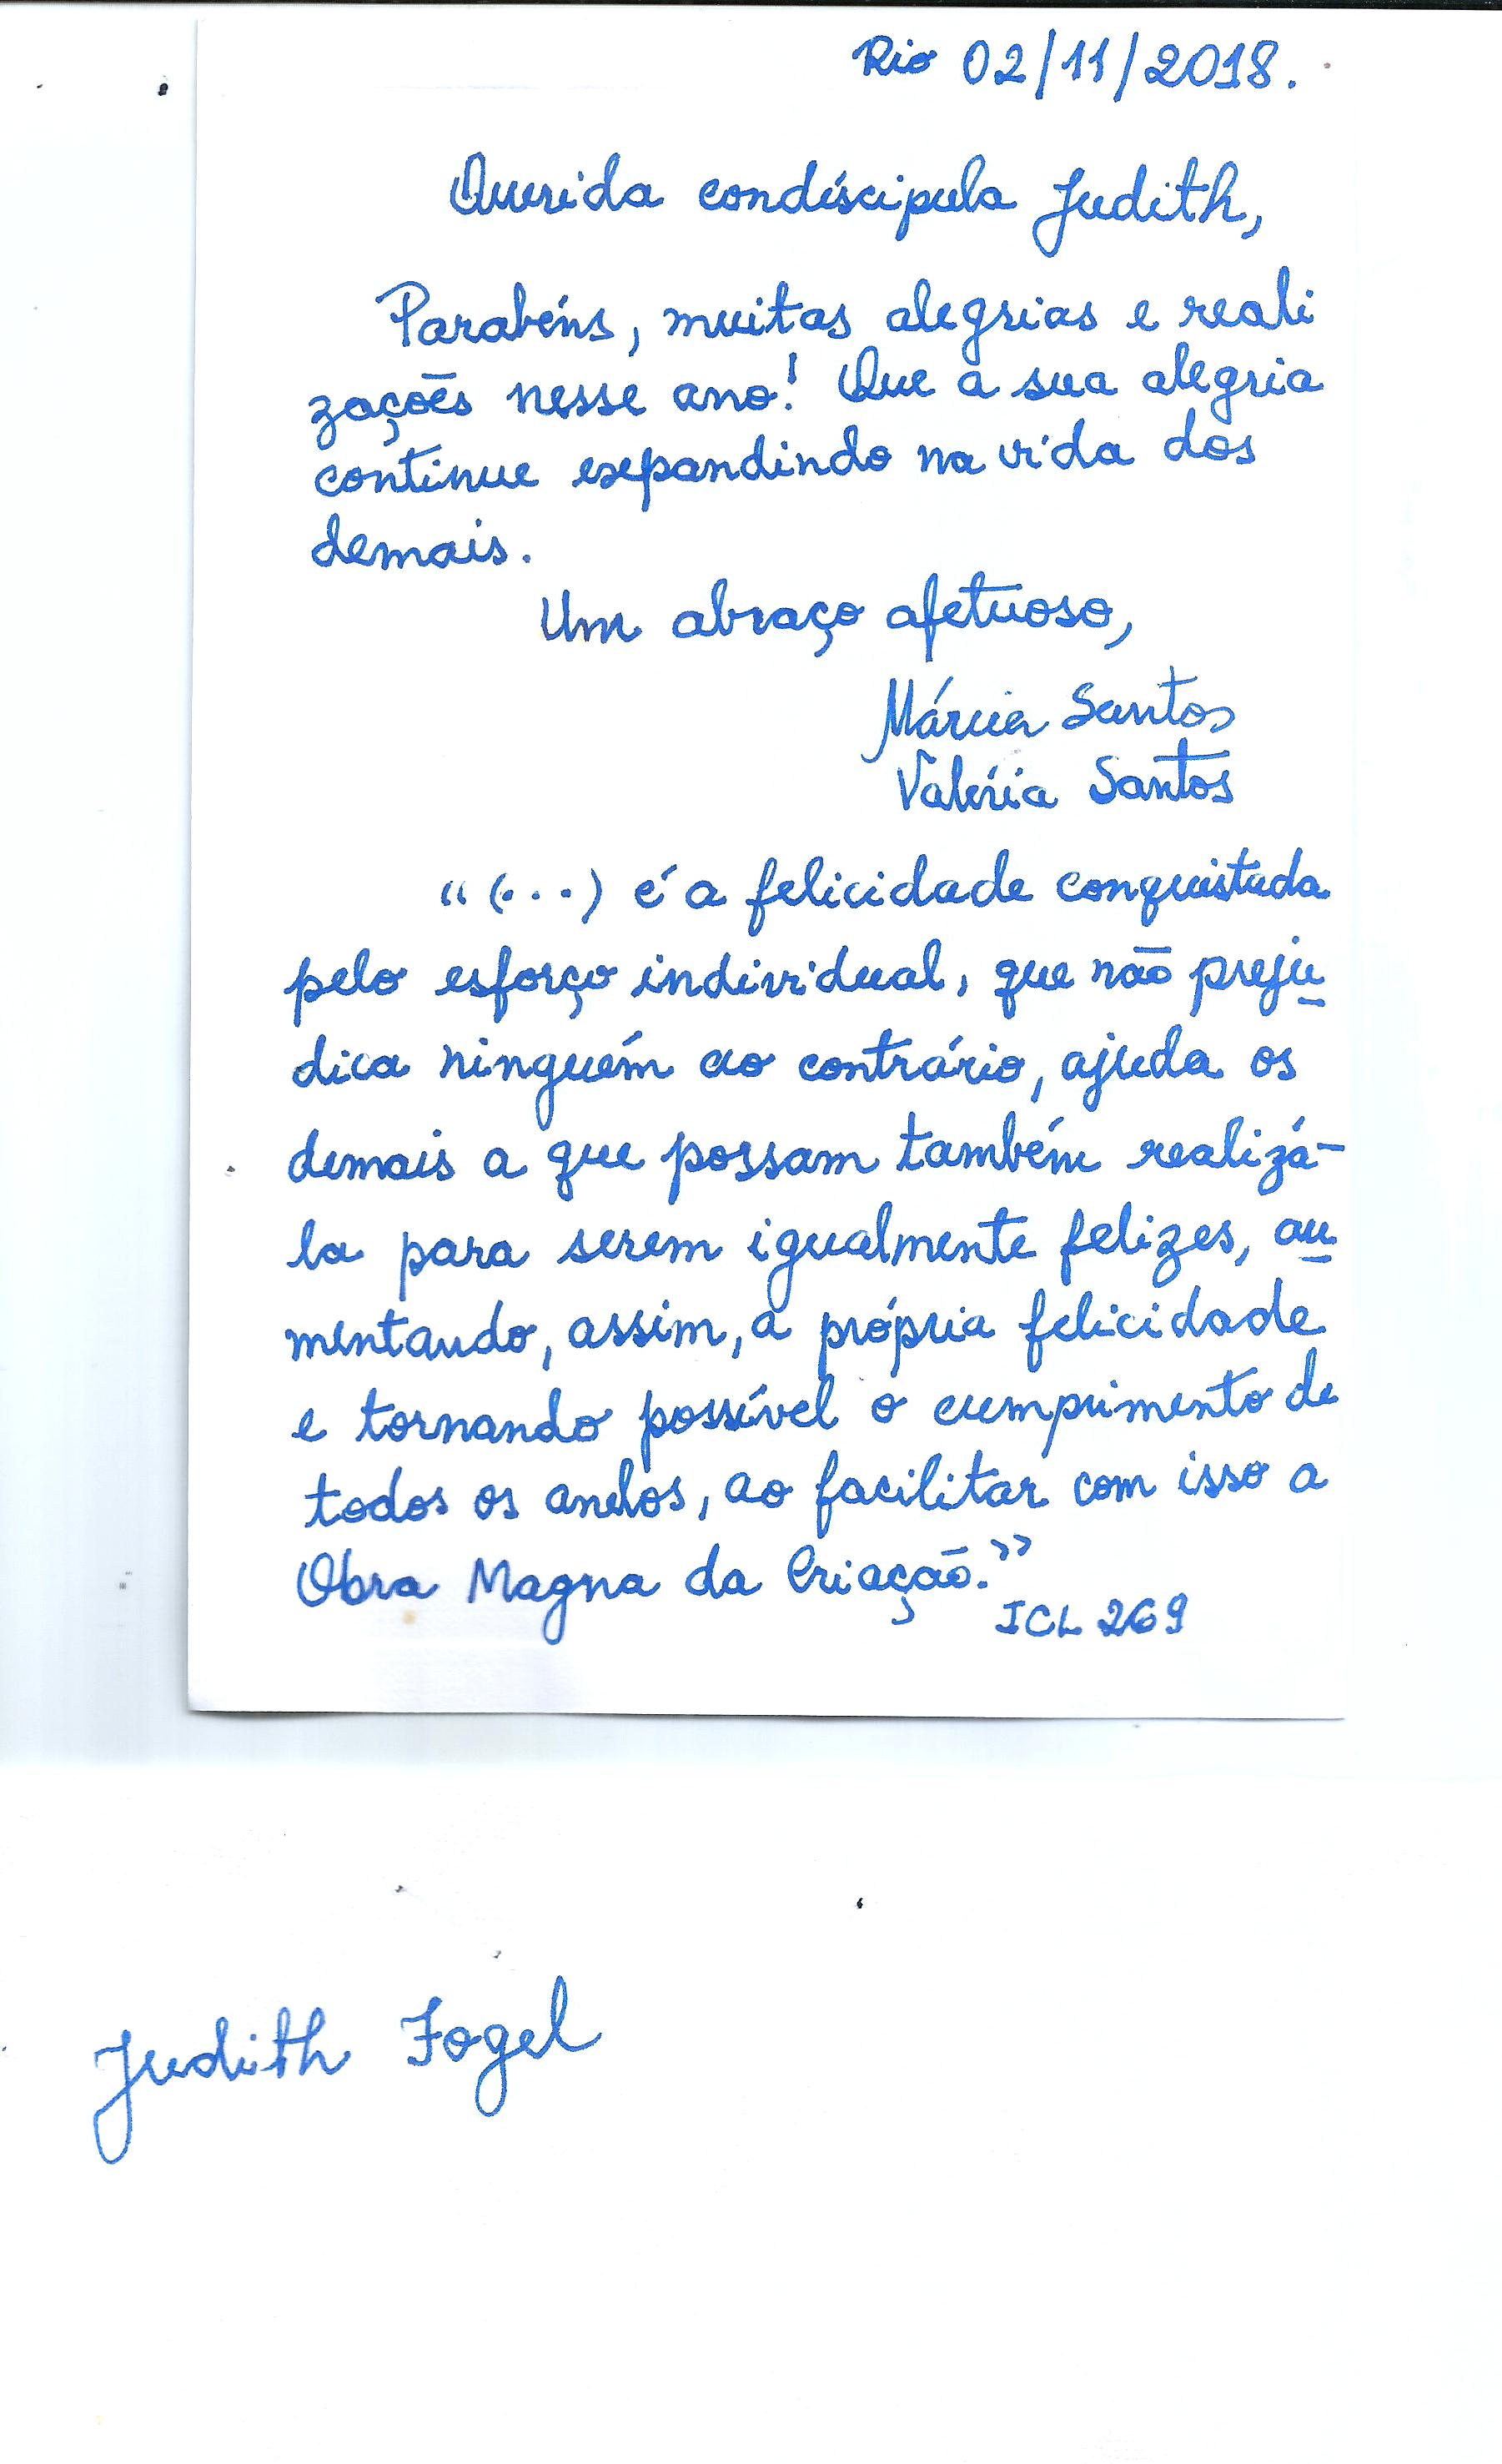 Rio 02/11/2018.
Querida condíscipula Judith,
Parabéns, muitas alegrias e reali
zações nesse ano! Que a sua alegria
continue expandindo na vida dos
demais.
Um abraço afetuoso,
Márcia Santos
Valéria Santos
"(...) é a felicidade conquistada
pelo esforço individual, que não preju
dica ninguém ao contrário, ajuda os
demais a que possam também realizá-
la para serem igualmente felizes, au
mentando, assim, a própria felicidade
e tornando possível o cumprimento de
todos os anelos, ao facilitar com isso a
Obra Magna da Criação."
ICL 269
Judith Fogel